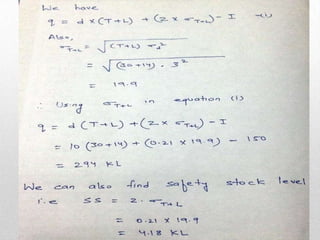 We have
q = d × (T+L) + (Z × σT+L) - I -(1)
Also,
σT+L = √(T+L) σd²
= √(30+14) . 3²
= 19.9
∴ Using σT+L in equation (1)
q = d (T+L) + (Z × σT+L) - I
= 10 (30+14) + (0.21 × 19.9) - 150
= 294 KL
We can also find safety stock level
i.e SS = Z. σT+L
= 0.21 × 19.9
= 4.18 KL